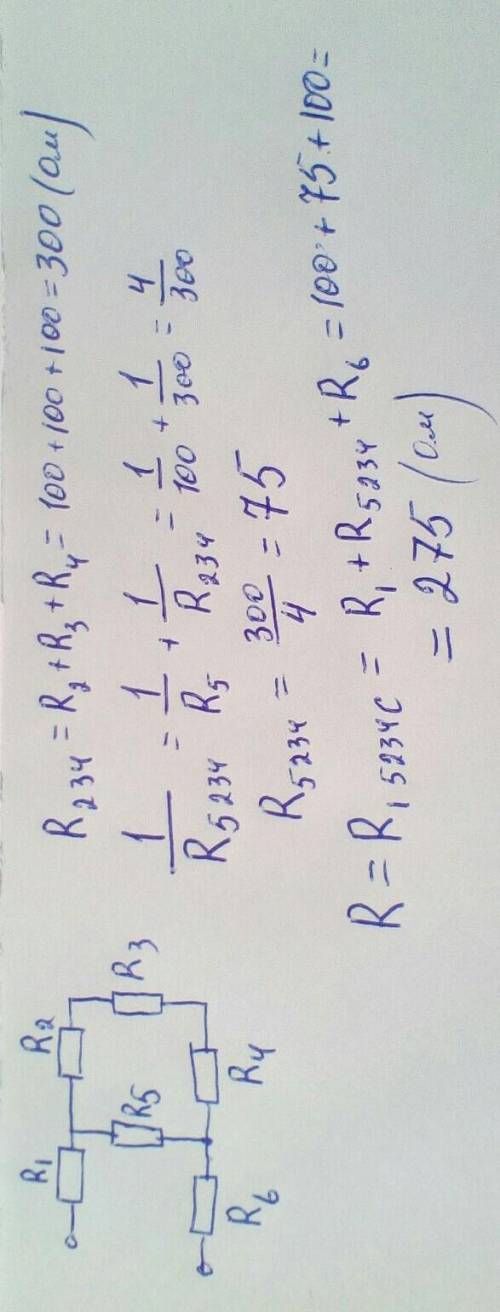 R1
R2
R3
R5
R4
R6
R234 = R2 + R3 + R4 = 100 + 100 + 100 = 300 (Ом)
1/R5234 = 1/R5 + 1/R234 = 1/100 + 1/300 = 4/300
R5234 = 300/4 = 75
R = R15234C = R1 + R5234 + R6 = 100 + 75 + 100 =
= 275 (Ом)